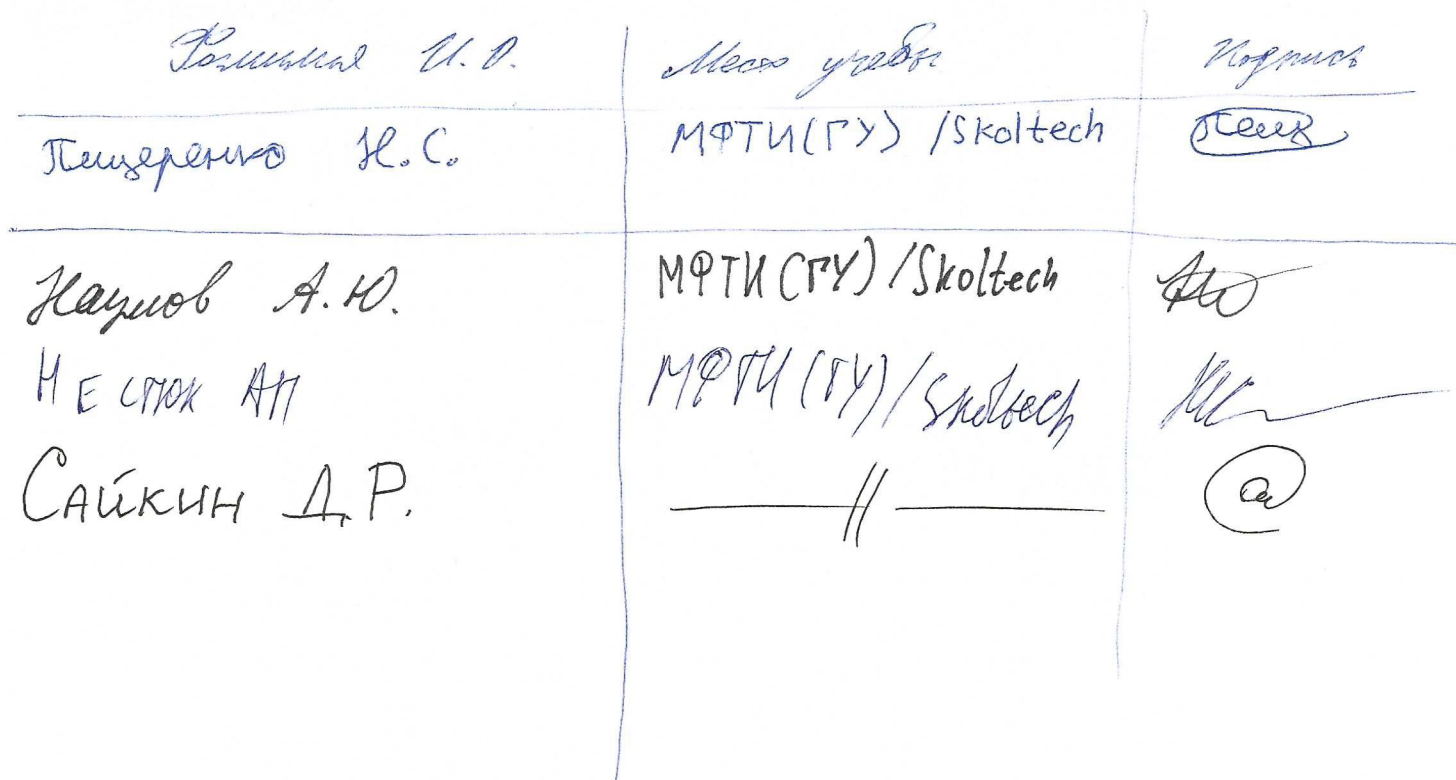 Фамилия И.О. Место учебы Подпись
Пищеренко Н.С. МФТИ(ГУ) /Skoltech
Наумов А.Ю. МФТИ (ГУ) /Skoltech
НЕСТЮК АП МФТИ (ГУ) / Skoltech
САЙКИН Д.Р. —//—